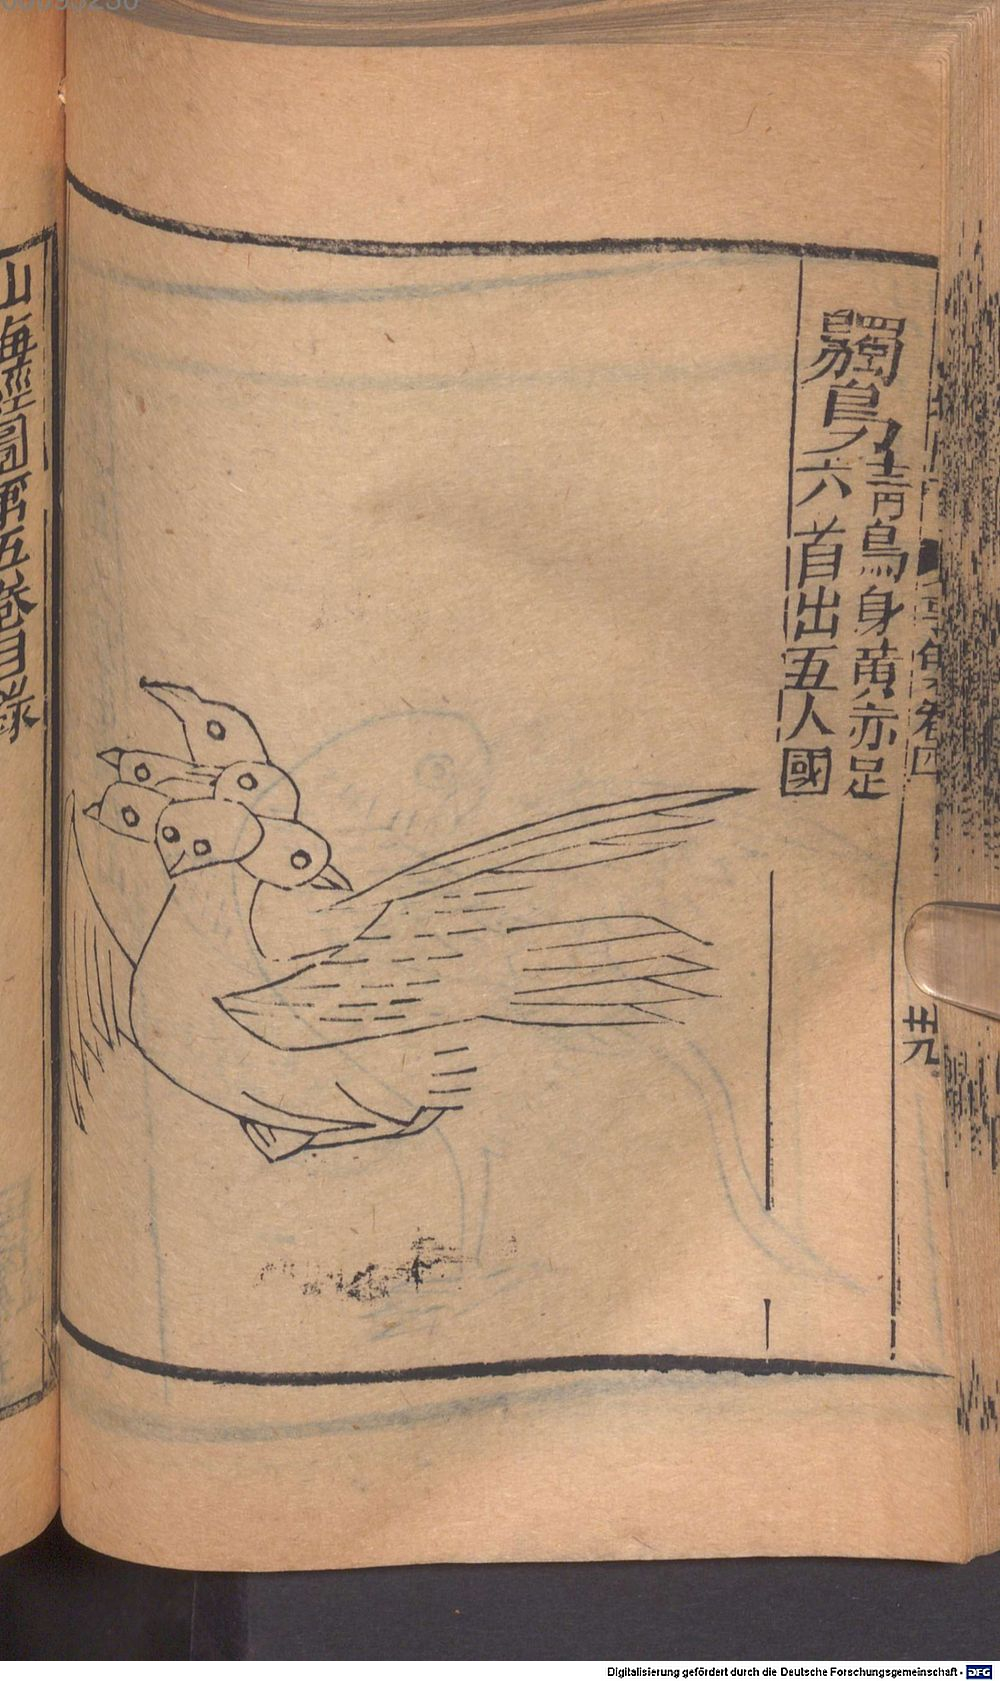 鸀鳥 青鳥身黄赤足
六首出五人國
卷四
卅九
山海經圖第五卷目錄
Digitalisierung gefördert durch die Deutsche Forschungsgemeinschaft - DFG